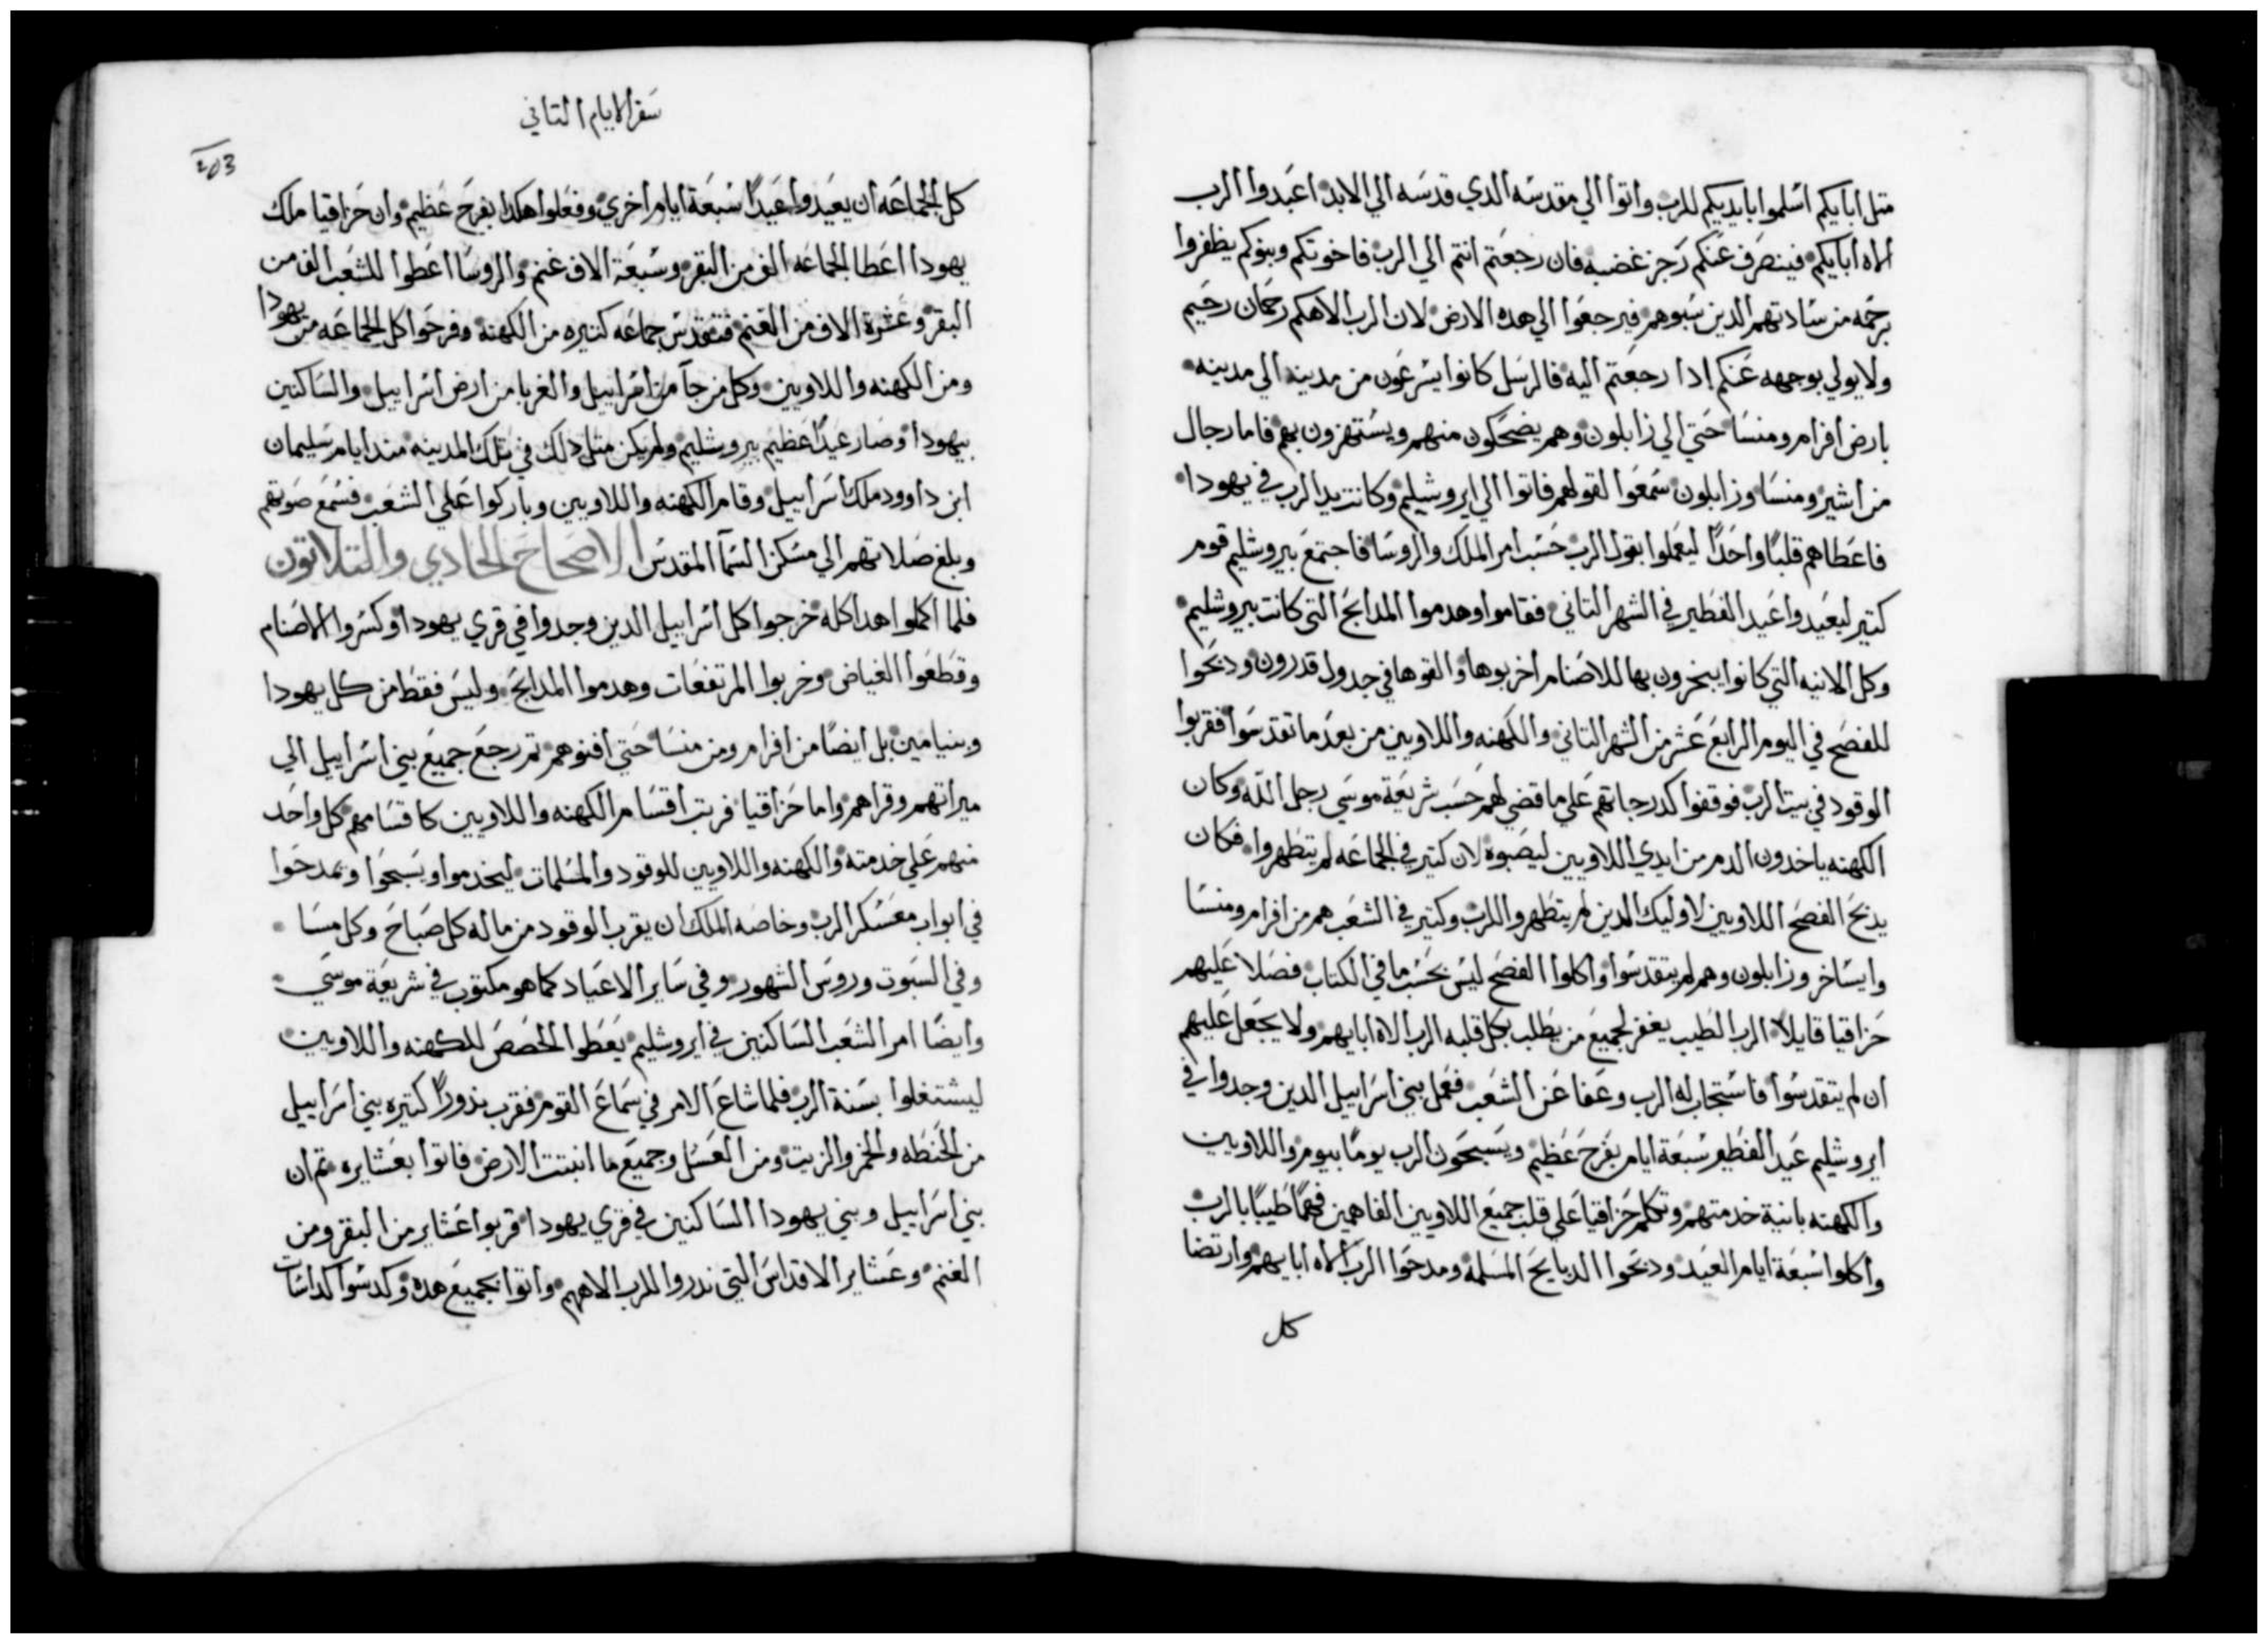 متل ابايكم اسلموا بايديكم للرب واتوا الي مقدسه الدي قدسه الي الابد اعبدوا الرب
الاه ابايكم فينصرف عنكم رجز غضبه فان رجعتم انتم الي الرب فاخوتكم وبنوكم يظفروا
برحمه من ساداتهم الدين سبوهم فيرجعوا الي هده الارض لان الرب الاهكم رحمان رحيم
ولا يولي بوجهه عنكم ادا رجعتم اليه فالرسل كانوا يسرعون من مدينه الي مدينه
بارض افرام ومنسا حتي الي زابلون وهم يضحكون منهم ويستهزون بهم فاما رجال
من اشير ومنسا وزابلون سمعوا لقولهم فاتوا الي ايروشليم وكانت يد الرب في يهودا
فاعطاهم قلبا واحدا ليعملوا بقول الرب حسب امر الملك والروسا فاجتمع بيروشليم قوم
كتير ليعيدوا عيد الفطير في الشهر التاني فقاموا وهدموا المدابح التي كانت بيروشليم
وكل الانيه التي كانوا يبخرون بها للاصنام اخربوها والقوها في جدول قدرون ودبحوا
للفصح في اليوم الرابع عشر من الشهر التاني والكهنه واللاويين من بعد ما تقدسوا فقربوا
الوقود في بيت الرب فوقفوا كدرجاتهم علي ما قضي لهم حسب شريعة موسي رجل الله وكان
الكهنه ياخدون الدم من ايدي اللاويين ليصبوه لان كتير في الجماعه لم يتطهروا فكان
يدبح الفصح اللاويين لاوليك الدين لم يتطهروا للرب وكتير في الشعب هم من افرام ومنسا
وايساخر وزابلون وهم لم يتقدسوا واكلوا الفصح ليس بحسب ما في الكتاب فصلا عليهم
حزاقيا قايلا الرب الطيب يغفر لجميع من يطلب بكل قلبه الرب الاه ابايهم ولا يجعل عليهم
ان لم يتقدسوا فاستجاب له الرب وعفا عن الشعب فعمل بني اسراييل الدين وجدوا في
ايروشليم عيد الفطير سبعة ايام بفرح عظيم ويسبحون الرب يوما بيوم واللاويين
والكهنه بانية خدمتهم وتكلم حزاقيا علي قلب جميع اللاويين الفاهمين فهما طيبا بالرب
واكلوا سبعة ايام العيد ودبحوا الدبايح المسلمه ومدحوا الرب الاه ابايهم وارتضا
كل
سفر الايام التاني
203
كل الجماعه ان يعيدوا عيدا سبعة ايام اخري وفعلوا هكدا بفرح عظيم وان حزاقيا ملك
يهودا اعطا الجماعه الف من البقر وسبعة الاف غنم والروسا اعطوا للشعب الف من
البقر وعشرة الاف من الغنم فتقدس جماعه كتيره من الكهنه وفرحوا كل الجماعه من يهودا
ومن الكهنه واللاويين وكل من جا من اسراييل والغربا من ارض اسراييل والساكنين
بيهودا وصار عيدا عظيم بيروشليم ولم يكن متل دلك في تلك المدينه مند ايام سليمان
ابن داوود ملك اسراييل وقام الكهنه واللاويين وباركوا علي الشعب فسمع صوتهم
وبلغ صلاتهم الي مسكن السما المقدس الاصحاح الحادي والتلاتون
فلما اكملوا هدا كله خرجوا كل اسراييل الدين وجدوا في قري يهودا وكسروا الاصنام
وقطعوا الغياض وخربوا المرتفعات وهدموا المدابح وليس فقط من كل يهودا
وبنيامين بل ايضا من افرام ومن منسا حتي افنوهم تم رجع جميع بني اسراييل الي
ميراتهم وقراهم واما حزاقيا فرتب اقسام الكهنه واللاويين كاقسامهم كل واحد
منهم علي خدمته والكهنه واللاويين للوقود والمسلمات ليخدموا ويسبحوا وتمدحوا
في ابواب معسكر الرب وخاصه الملك ان يقرب الوقود من ماله كل صباح وكل مسا
وفي السبوت وروس الشهور وفي ساير الاعياد كما هو مكتوب في شريعة موسي
وايضا امر الشعب الساكنين في ايروشليم يعطوا الخصص للكهنه واللاويين
ليشتغلوا بسنة الرب فلما شاع الامر في سماع القوم فقرب ندورا كتيره بني اسراييل
من الحنطه والخمر والزيت ومن العسل وجميع ما انبتت الارض فاتوا بعشايره تم ان
بني اسراييل وبني يهودا الساكنين في قري يهودا قربوا عشاير من البقر ومن
الغنم وعشاير الاقداس التي ندروا للرب الاههم واتوا بجميع هده وكدسوا كداسات